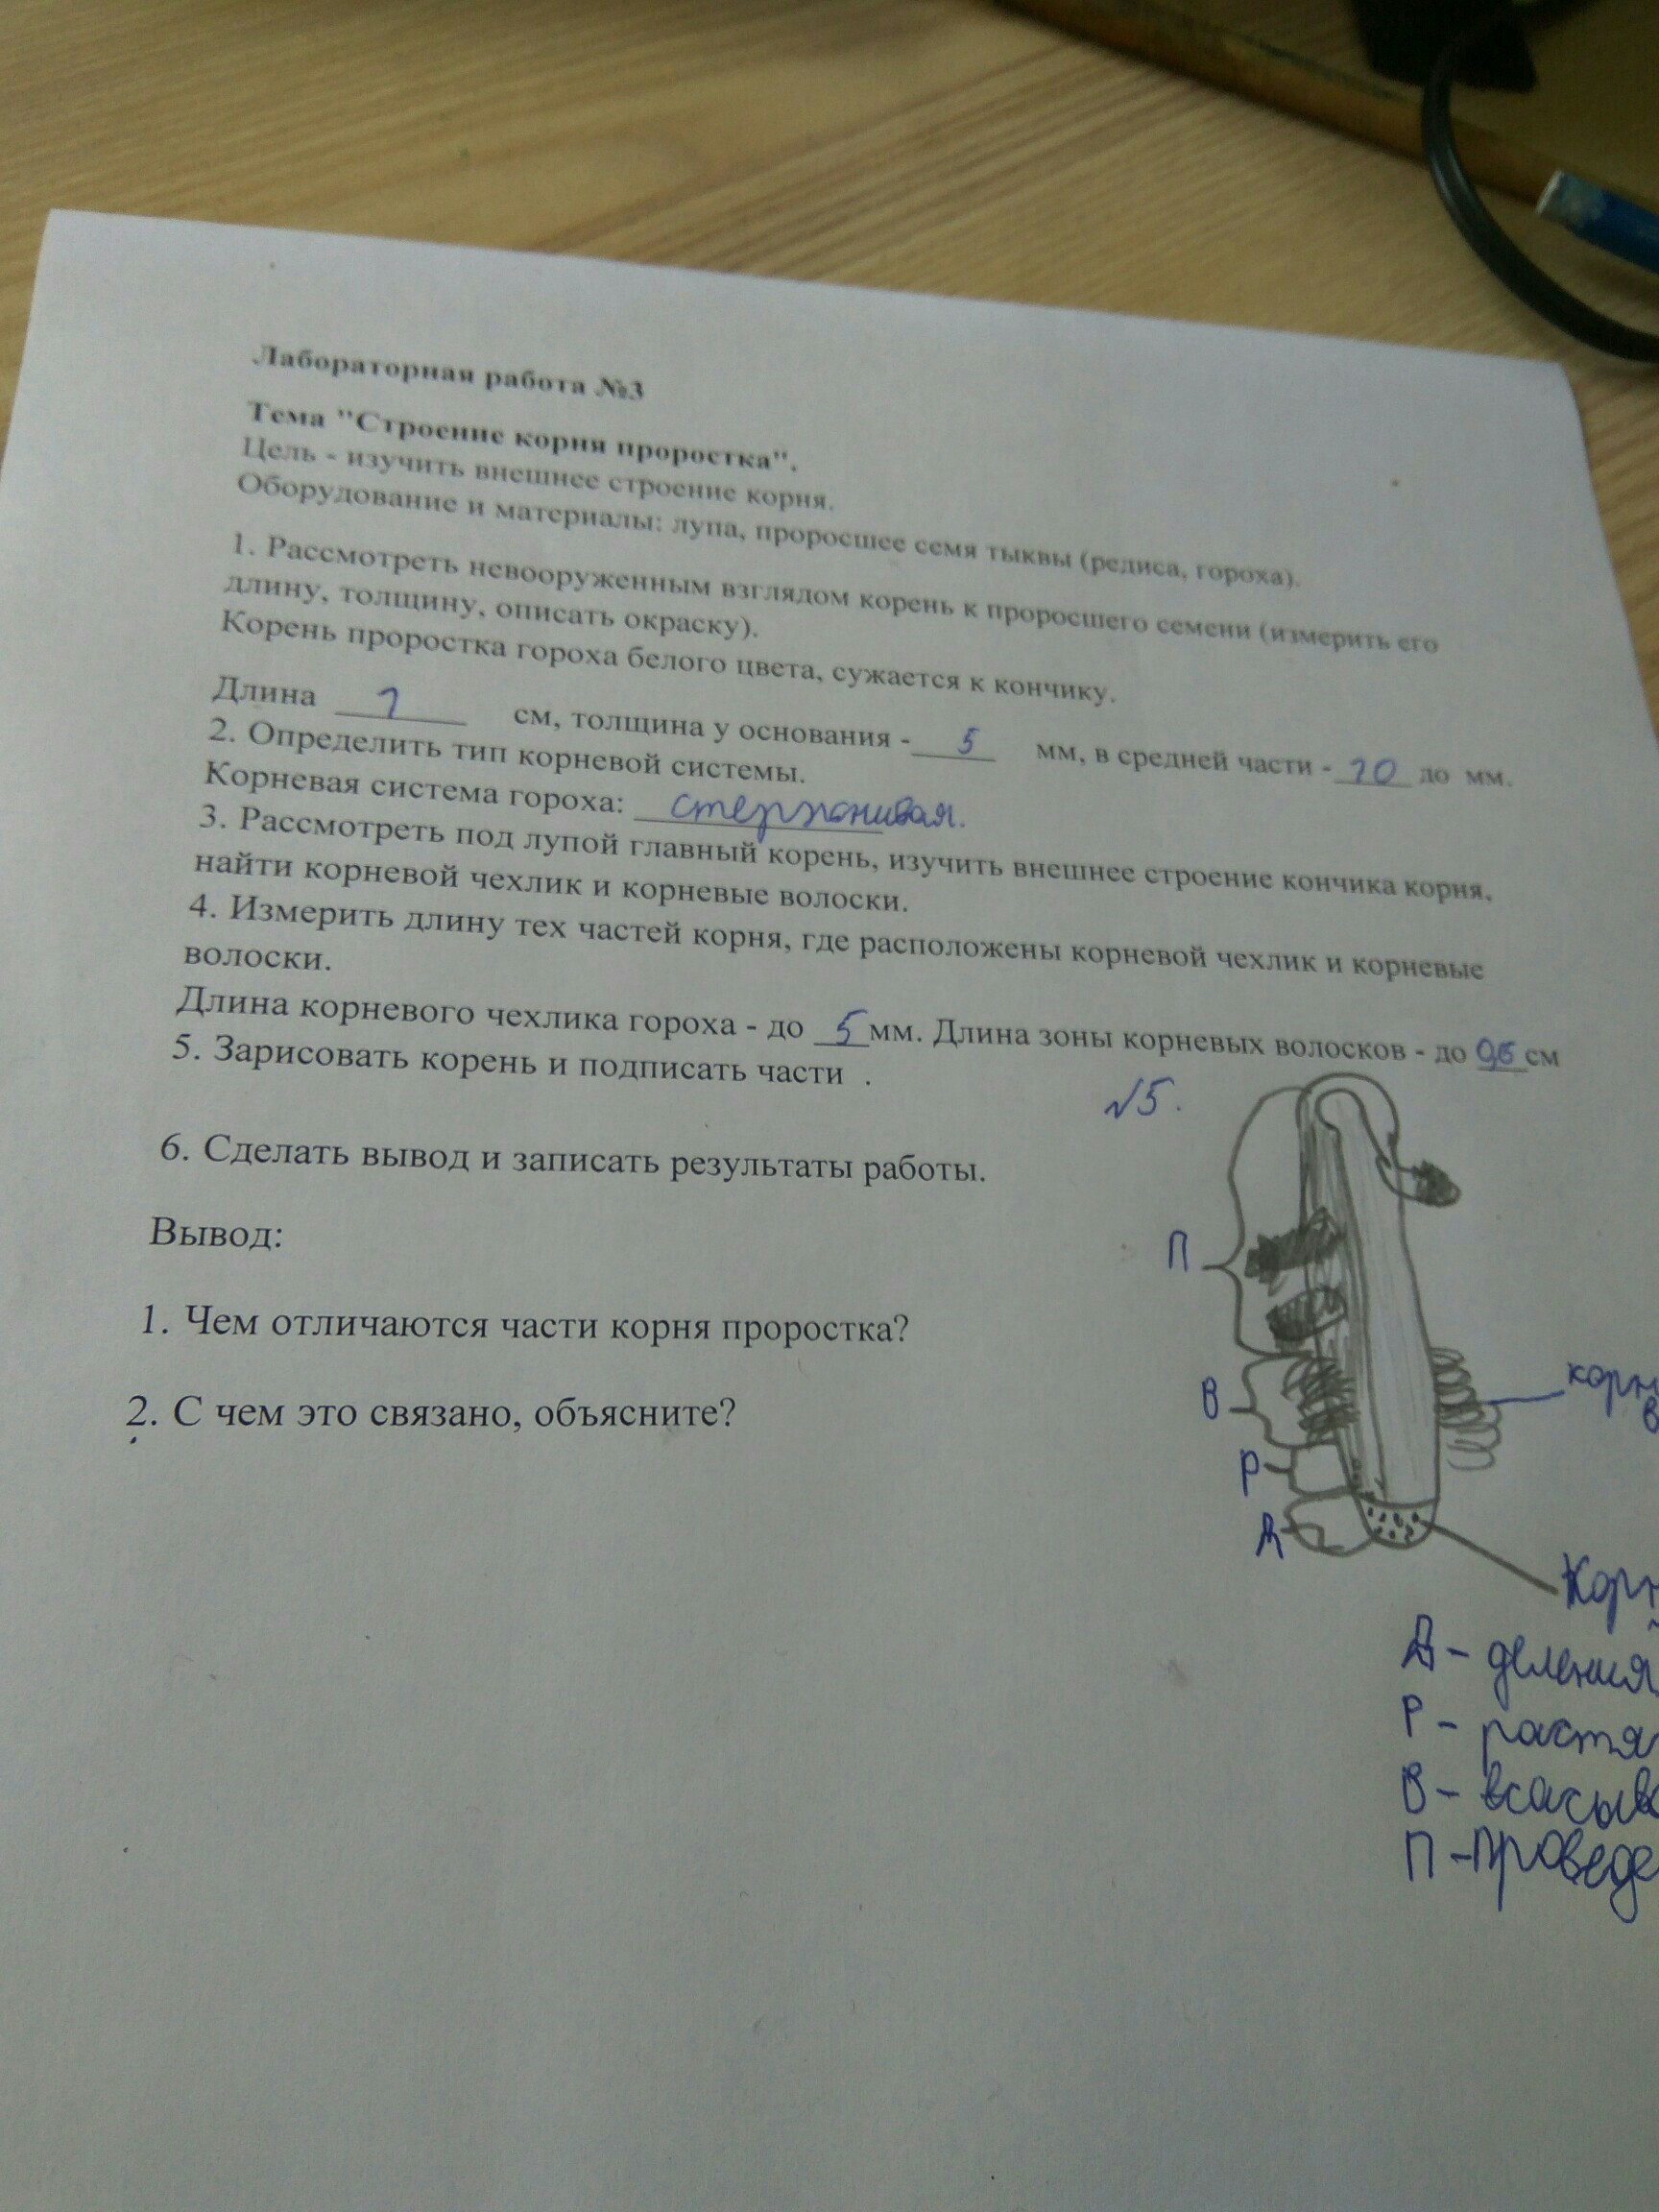 Лабораторная работа №3
Тема "Строение корня проростка".
Цель - изучить внешнее строение корня.
Оборудование и материалы: лупа, проросшее семя тыквы (редиса, гороха).
1. Рассмотреть невооруженным взглядом корень к проросшего семени (измерить его
длину, толщину, описать окраску).
Корень проростка гороха белого цвета, сужается к кончику.
Длина 1 см, толщина у основания - 5 мм, в средней части - 10 до мм.
2. Определить тип корневой системы.
Корневая система гороха: стержнивая.
3. Рассмотреть под лупой главный корень, изучить внешнее строение кончика корня,
найти корневой чехлик и корневые волоски.
4. Измерить длину тех частей корня, где расположены корневой чехлик и корневые
волоски.
Длина корневого чехлика гороха - до 5 мм. Длина зоны корневых волосков - до см
5. Зарисовать корень и подписать части .
№5.
6. Сделать вывод и записать результаты работы.
Вывод:
1. Чем отличаются части корня проростка?
2. С чем это связано, объясните?
П
В
Р
Д
корн
в
Корн
Д - деления
Р - растя
В - всасыва
П - проведе